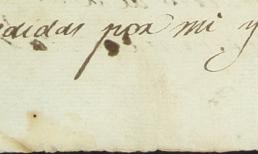 didas por mi y